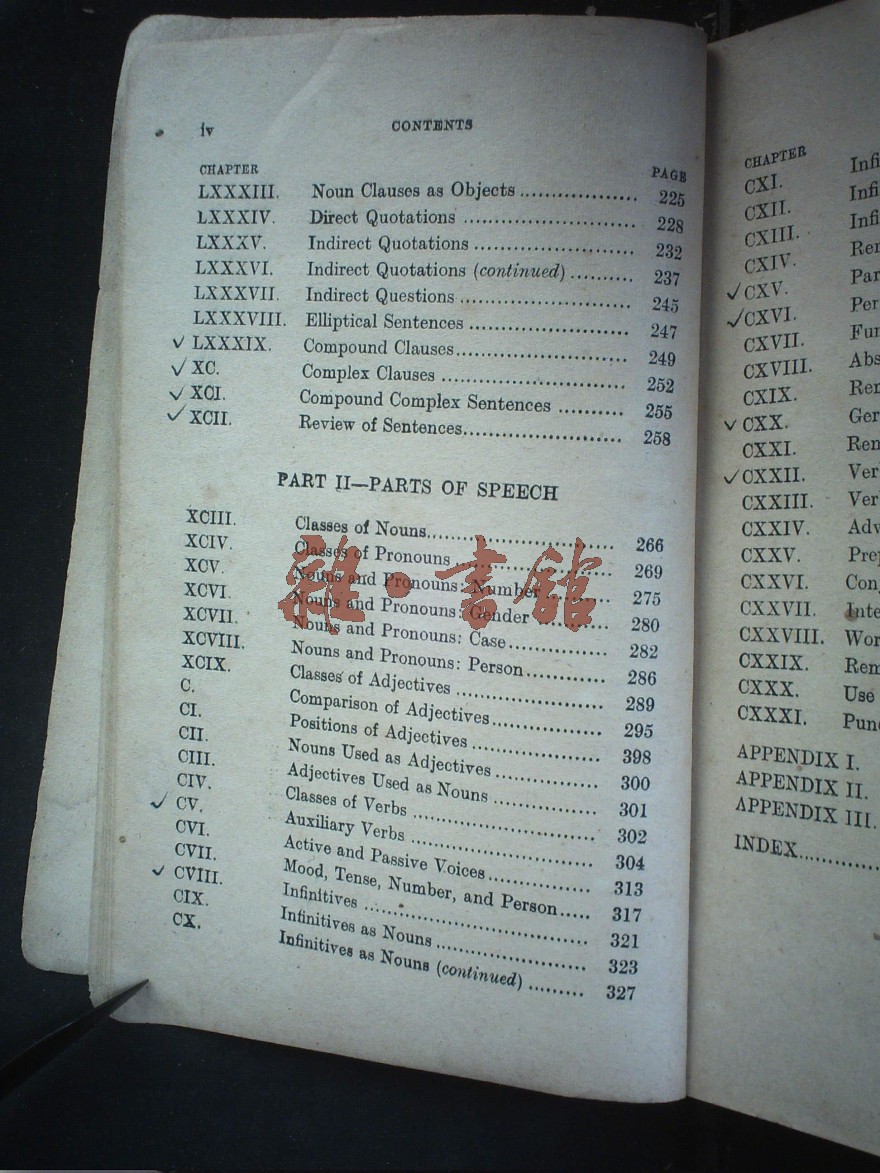 iv CONTENTS
CHAPTER PAGE
LXXXIII. Noun Clauses as Objects .................. 225
LXXXIV. Direct Quotations .......................... 228
LXXXV. Indirect Quotations ........................ 232
LXXXVI. Indirect Quotations (continued) .......... 237
LXXXVII. Indirect Questions .......................... 245
LXXXVIII. Elliptical Sentences ........................ 247
✓ LXXXIX. Compound Clauses.......................... 249
✓ XC. Complex Clauses ............................ 252
✓ XCI. Compound Complex Sentences .......... 255
✓ XCII. Review of Sentences........................ 258
PART II—PARTS OF SPEECH
XCIII. Classes of Nouns............................ 266
XCIV. Classes of Pronouns ........................ 269
XCV. Nouns and Pronouns: Number .......... 275
XCVI. Nouns and Pronouns: Gender ............ 280
XCVII. Nouns and Pronouns: Case............... 282
XCVIII. Nouns and Pronouns: Person............ 286
XCIX. Classes of Adjectives ...................... 289
C. Comparison of Adjectives................. 295
CI. Positions of Adjectives .................... 398
CII. Nouns Used as Adjectives ................ 300
CIII. Adjectives Used as Nouns ................ 301
CIV. Classes of Verbs ............................ 302
✓ CV. Auxiliary Verbs ............................ 304
CVI. Active and Passive Voices................ 313
CVII. Mood, Tense, Number, and Person..... 317
✓ CVIII. Infinitives .................................. 321
CIX. Infinitives as Nouns ........................ 323
CX. Infinitives as Nouns (continued) ......... 327
雜·書館
CHAPTER
CXI. Infi
CXII. Infi
CXIII. Infi
CXIV. Rer
✓ CXV. Par
✓ CXVI. Per
CXVII. Fur
CXVIII. Abs
CXIX. Rer
✓ CXX. Ger
CXXI. Ren
✓ CXXII. Ver
CXXIII. Ver
CXXIV. Adv
CXXV. Prep
CXXVI. Conj
CXXVII. Inte
CXXVIII. Wor
CXXIX. Rem
CXXX. Use
CXXXI. Punc
APPENDIX I.
APPENDIX II.
APPENDIX III.
INDEX..............